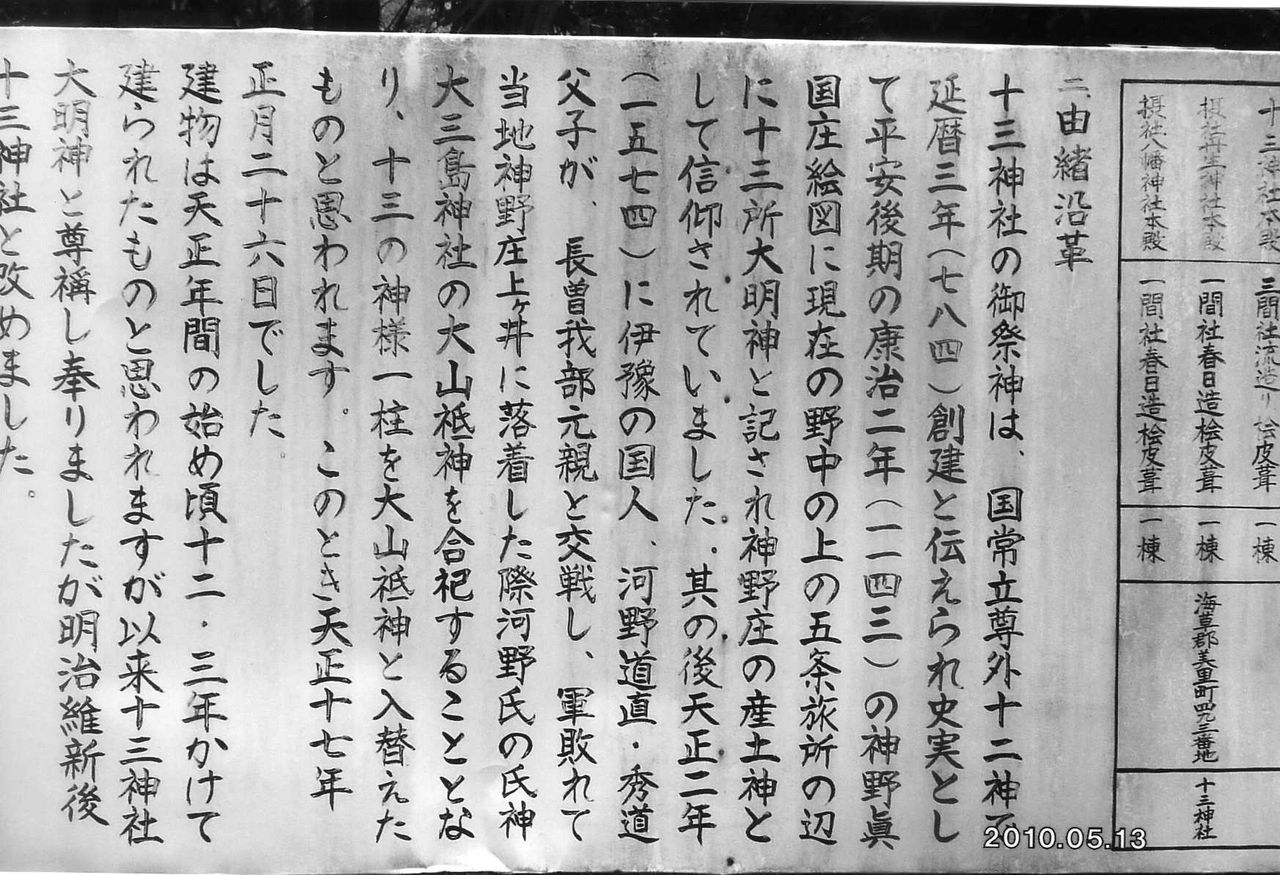 十三神社本殿 三間社流造り 桧皮葺 一棟
摂社丹生神社本殿 一間社春日造桧皮葺 一棟 海草郡美里町四九三番地 十三神社
摂社八幡神社本殿 一間社春日造桧皮葺 一棟
二由緒沿革
十三神社の御祭神は、国常立尊外十二神で
延暦三年(七八四)創建と伝えられ史実とし
て平安後期の康治二年(一一四三)の神野眞
国庄絵図に現在の野中の上の五条旅所の辺
に十三所大明神と記され神野庄の産土神と
して信仰されていました。其の後天正二年
(一五七四)に伊豫の国人、河野道直・秀道
父子が、長曽我部元親と交戦し、軍敗れて
当地神野庄上ヶ井に落着した際河野氏の氏神
大三島神社の大山祇神を合祀することとな
り、十三の神様一柱を大山祇神と入替えた
ものと思われます。このとき天正十七年
正月二十六日でした。
建物は天正年間の始め頃十二・三年かけて
建られたものと思われますが以来十三神社
大明神と尊稱し奉りましたが明治維新後
十三神社と改めました。
2010.05.13